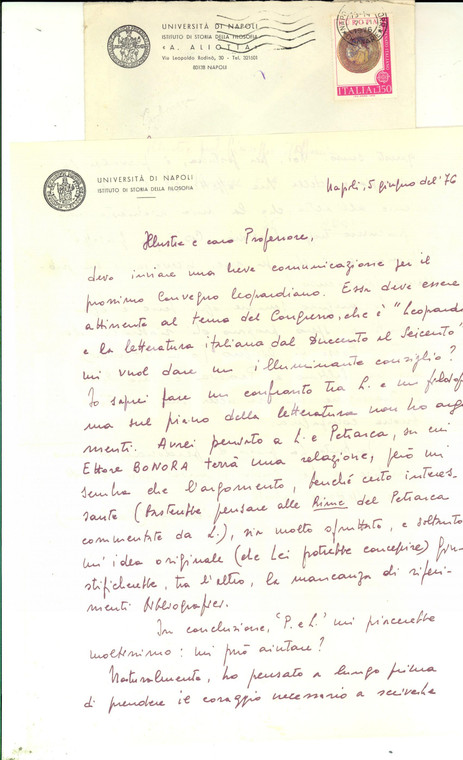 UNIVERSITÀ DI NAPOLI
ISTITUTO DI STORIA DELLA FILOSOFIA
« A. ALIOTTA »
Via Leopoldo Rodinò, 20 - Tel. 321501
80138 NAPOLI
ITALIA L.150
UNIVERSITÀ DI NAPOLI
ISTITUTO DI STORIA DELLA FILOSOFIA
Napoli, 5 giugno del '76
Illustre e caro Professore,
devo inviare una breve comunicazione per il
prossimo Convegno leopardiano. Essa deve essere
attinente al tema del Congresso, che è "Leopardi
e la letteratura italiana dal Duecento al Seicento"
mi vuol dare un illuminante consiglio?
Io saprei fare un confronto tra L. e un filosof
ma sul piano della letteratura non ho argo
menti. Avrei pensato a L. e Petrarca, su cui
Ettore BONORA terrà una relazione, però mi
sembra che l'argomento, benché certo interes-
sante (basterebbe pensare alle Rime del Petrarca
commentate da L.), sia molto sfruttato, e soltanto
un'idea originale (che Lei potrebbe concepire) giu-
stificherebbe, tra l'altro, la mancanza di riferi-
menti bibliografici.
In conclusione, "P. e L." mi piacerebbe
moltissimo: mi può aiutare?
Naturalmente, ho pensato a lungo prima
di prendere il coraggio necessario a scriverLe